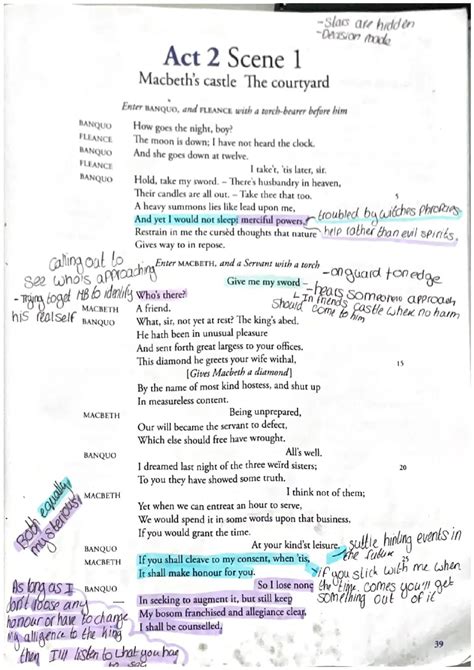 - Stars are hidden
- Decision made
Act 2 Scene 1
Macbeth's castle The courtyard
Enter BANQUO, and FLEANCE with a torch-bearer before him
BANQUO How goes the night, boy?
FLEANCE The moon is down; I have not heard the clock.
BANQUO And she goes down at twelve.
FLEANCE I take't, 'tis later, sir.
BANQUO Hold, take my sword. – There's husbandry in heaven,
Their candles are all out. – Take thee that too. 5
A heavy summons lies like lead upon me,
And yet I would not sleep; merciful powers,
troubled by witches
Restrain in me the cursèd thoughts that nature
help rather than evil spirits.
Gives way to in repose.
Enter MACBETH, and a Servant with a torch
Calling out to
see who is approaching
Give me my sword –
- on guard + on edge
- Trying to get MB to identify
his realself
Who's there?
- hears someone approach
MACBETH A friend.
In friends castle when no harm
should come to him
BANQUO What, sir, not yet at rest? The king's abed.
He hath been in unusual pleasure
And sent forth great largess to your offices.
This diamond he greets your wife withal, 15
[Gives Macbeth a diamond]
By the name of most kind hostess, and shut up
In measureless content.
MACBETH Being unprepared,
Our will became the servant to defect,
Which else should free have wrought.
BANQUO All's well.
I dreamed last night of the three weïrd sisters; 20
To you they have showed some truth.
MACBETH I think not of them;
Yet when we can entreat an hour to serve,
We would spend it in some words upon that business,
If you would grant the time.
Both equally
mysterious
BANQUO At your kind'st leisure.
suttle hinting events in
the future
MACBETH If you shall cleave to my consent, when 'tis, 25
It shall make honour for you.
if you stick with me when
the time comes you'll get
something out of it
BANQUO So I lose none
In seeking to augment it, but still keep
My bosom franchised and allegiance clear,
I shall be counselled.
As long as I
don't loose any
honour or have to change
my alligence to the king
then I'll listen to what you have
to say
39